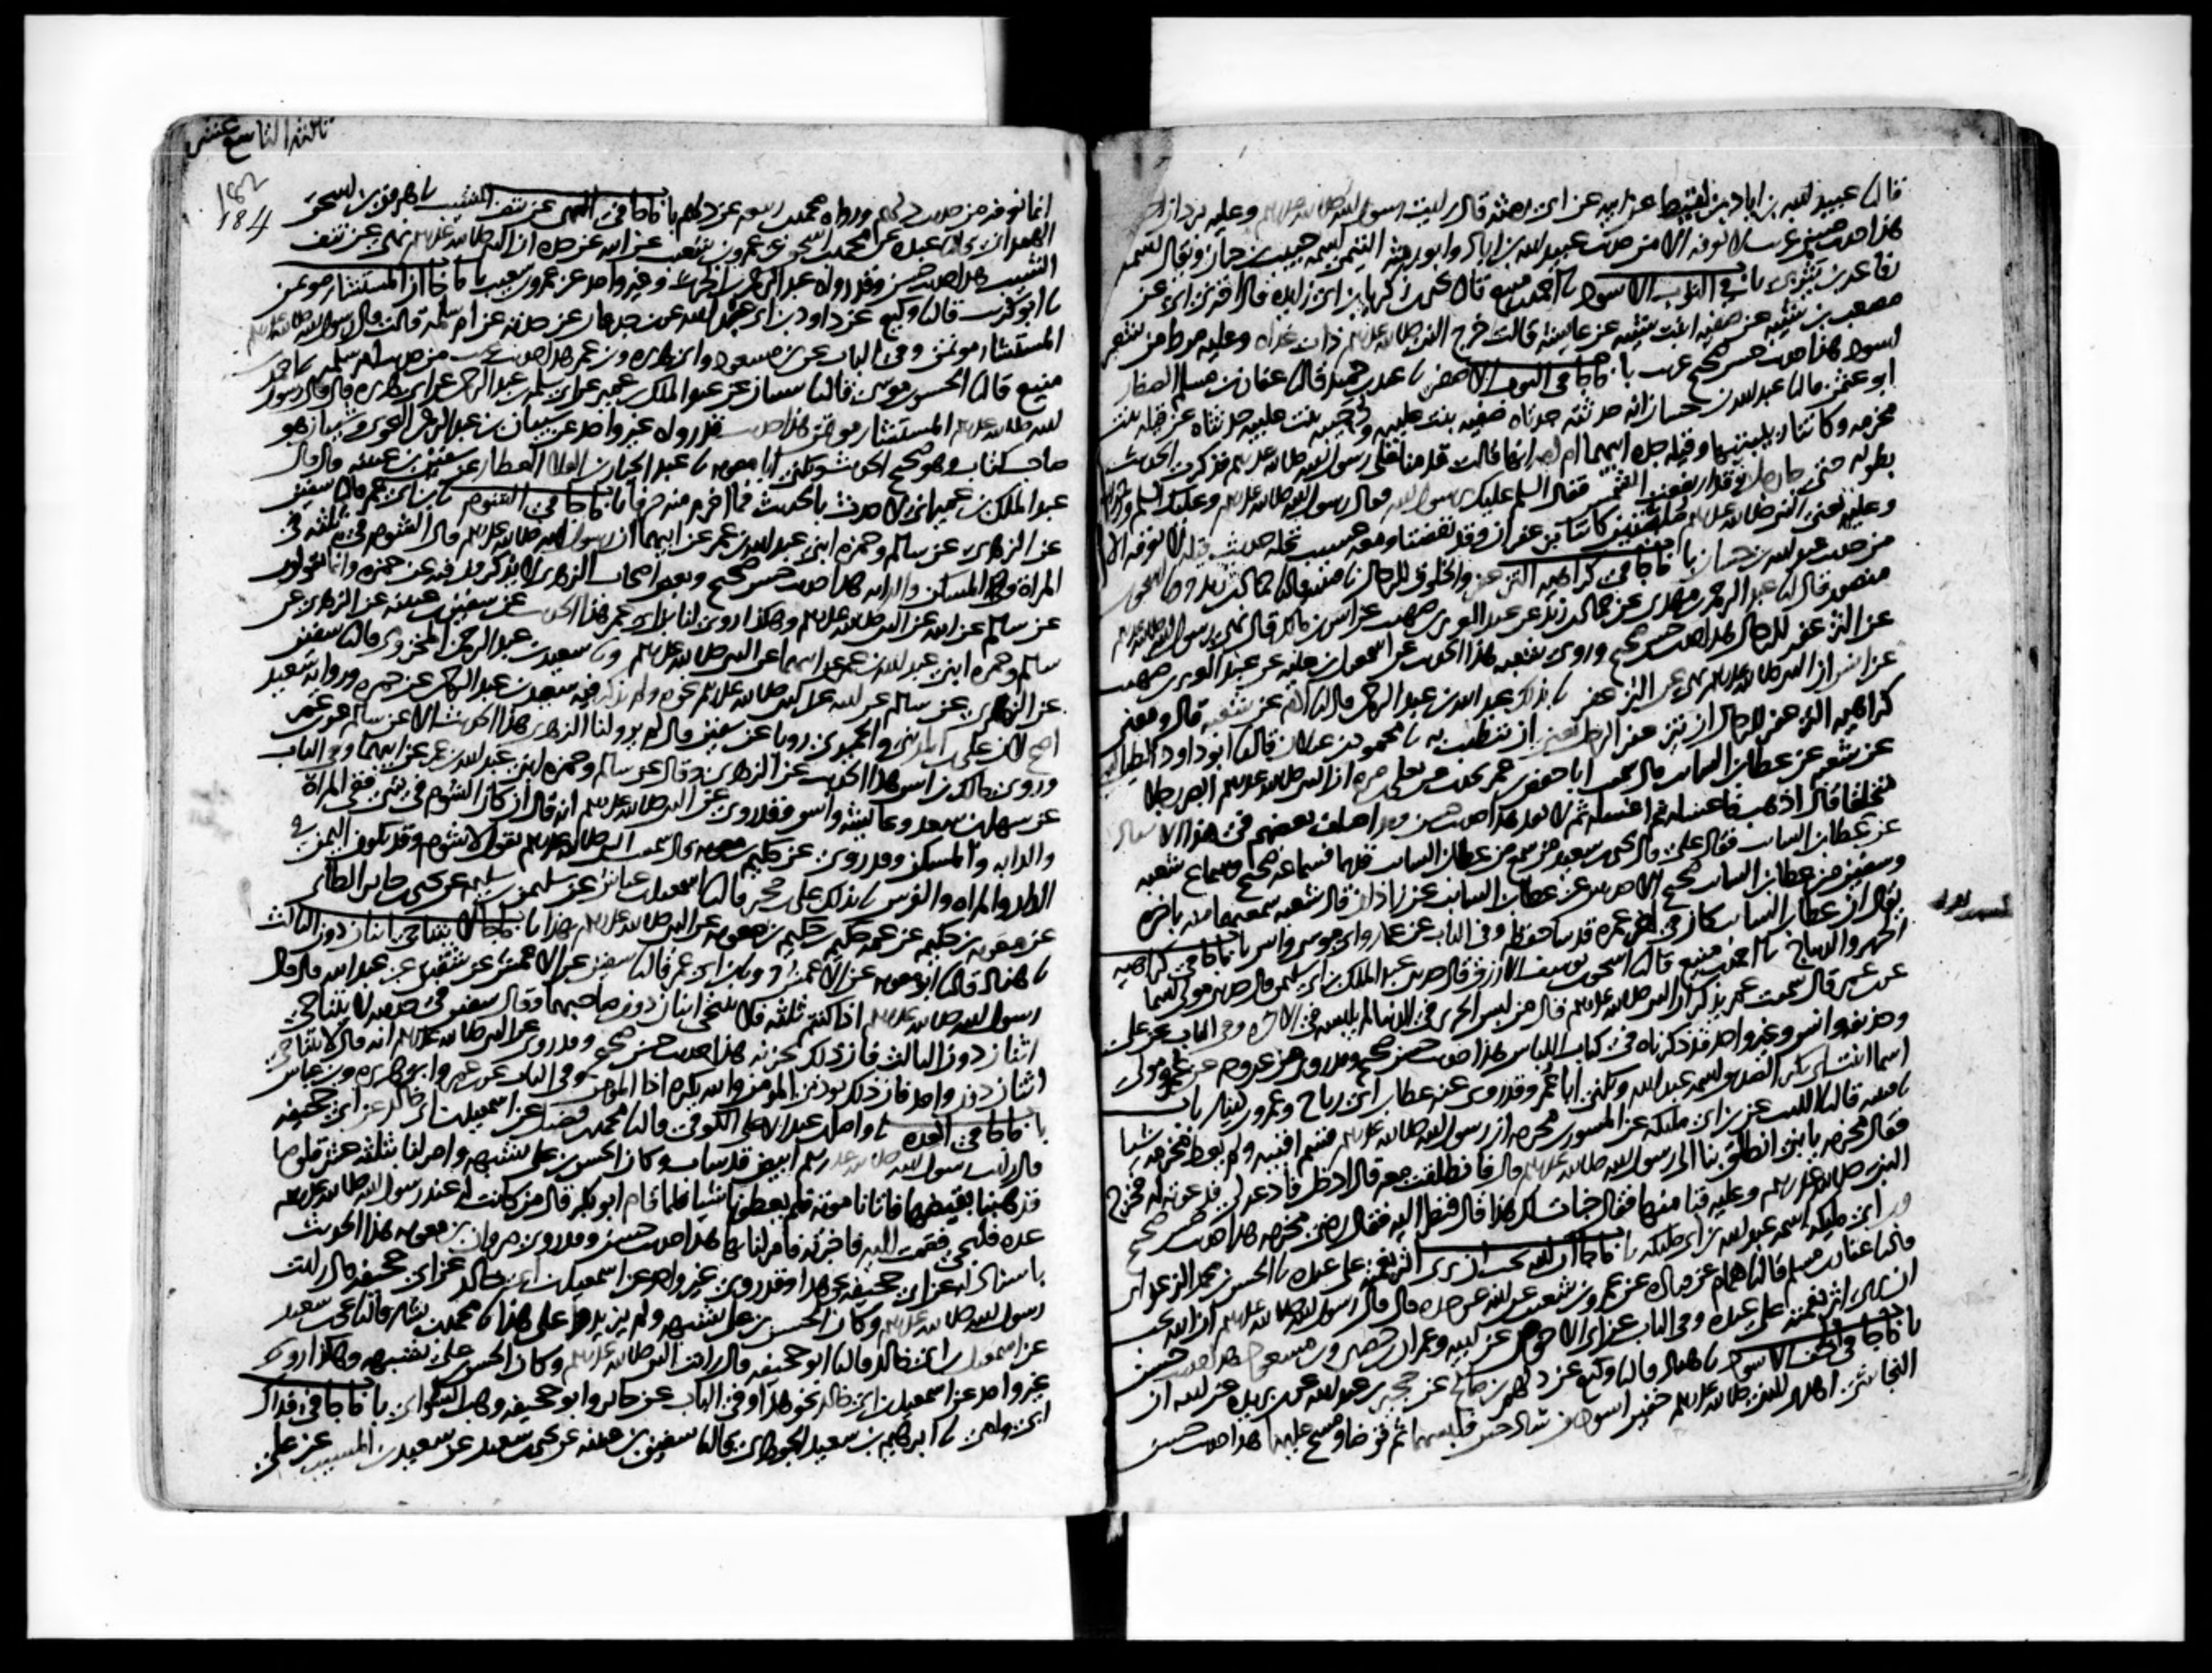 قال نا عبيد الله بن اياد بن لقيط عن ابيه عن ابي رمثة قال رايت رسول الله صلى الله عليه وسلم وعليه بردان
هذا حديث حسن غريب لا نعرفه الا من حديث عبيد الله بن اياد وابو رمثة التيمي اسمه حبيب بن حيان ويقال اسمه
رفاعة بن يثربي باب في الثوب الاسود نا احمد بن منيع قال نا يحيى بن زكريا بن ابي زايدة قال اخبرني ابي عن
مصعب بن شيبة عن صفية ابنت شيبة عن عايشة قالت خرج النبي صلى الله عليه وسلم ذات غداة وعليه مرط من شعر
اسود هذا حديث حسن صحيح غريب باب ما جا في الثوب الاصفر نا عبد بن حميد قال نا عفان بن مسلم الصفار
ابو عثمن قال نا عبد الله بن حسان انه حدثته جدتاه صفية بنت عليبة ودحيبة بنت عليبة حدثتاه عن قيلة بنت
مخرمة وكانتا ربيبتيها وقيلة جدة ابيهما ام امه انها قالت قدمنا على رسول الله صلى الله عليه وسلم فذكرت الحديث
بطوله حتى جا رجل وقد ارتفعت الشمس فقال السلم عليك يا رسول الله فقال رسول الله صلى الله عليه وسلم وعليك السلم ورحمة الله
وعليه تعني النبي صلى الله عليه وسلم مليتين كانتا بزعفران وقد نفضتا ومعه عسيب نخلة حديث قيلة لا نعرفه الا
من حديث عبد الله بن حسان باب ما جا في كراهية التزعفر والخلوق للرجال نا قتيبة قال نا حماد بن زيد ونا اسحق بن
منصور قال نا عبد الرحمن بن مهدي عن حماد بن زيد عن عبد العزيز بن صهيب عن انس بن مالك قال نهى رسول الله صلى الله عليه وسلم
عن التزعفر للرجال هذا حديث حسن صحيح وروى شعبة هذا الحديث عن اسمعيل بن علية عن عبد العزيز بن صهيب
عن انس ان النبي صلى الله عليه وسلم نهى عن التزعفر نا بذلك عبد الله بن عبد الرحمن قال نا ادم عن شعبة قال ومعنى
كراهية التزعفر للرجال ان يتزعفر الرجل يعني ان يتطيب به نا محمود بن غيلان قال نا ابو داود الطيالسي
عن شعبة عن عطا بن السايب قال سمعت ابا حفص بن عمر يحدث عن يعلى بن مرة ان النبي صلى الله عليه وسلم ابصر رجلا
متخلقا قال اذهب فاغسله ثم اغسله ثم لا تعد هذا حديث حسن وقد اختلف بعضهم في هذا الاسناد
عن عطا بن السايب فقال علي قال يحيى بن سعيد من سمع من عطا بن السايب قديما فسماعه صحيح وسماع شعبة
وسفين من عطا بن السايب صحيح الا حديثين عن عطا بن السايب عن زاذان قال شعبة سمعتهما منه باخرة
يقال ان عطا بن السايب كان في اخر عمره قد سا حفظه وفي الباب عن عمار وابي موسى وانس باب ما جا في كراهية
الحرير والديباج نا احمد بن منيع قال نا اسحق بن يوسف الازرق قال حدثني عبد الملك بن ابي سليمن قال حدثني مولى اسما
عن ابن عمر قال سمعت عمر يذكر ان النبي صلى الله عليه وسلم قال من لبس الحرير في الدنيا لم يلبسه في الاخرة وفي الباب عن علي
وحذيفة وانس وغير واحد قد ذكرناه في كتاب اللباس هذا حديث حسن صحيح وقد روي من غير وجه عن عمر ومولى
اسما ابنت ابي بكر الصديق اسمه عبد الله ويكنى ابا عمر وقد روى عنه عطا بن ابي رباح وعمرو بن دينار باب
نا قتيبة قال نا الليث عن ابن ابي مليكة عن المسور بن مخرمة ان رسول الله صلى الله عليه وسلم قسم اقبية ولم يعط مخرمة شيا
فقال مخرمة يا بني انطلق بنا الى رسول الله صلى الله عليه وسلم قال فانطلقت معه قال ادخل فادعه لي فدعوته له فخرج
النبي صلى الله عليه وسلم وعليه قبا منها فقال خبات لك هذا قال فنظر اليه فقال رضي مخرمة هذا حديث حسن صحيح
وابن ابي مليكة اسمه عبد الله بن ابي مليكة باب ما جا ان الله يحب ان يرى اثر نعمته على عبده نا الحسن بن محمد الزعفراني
قال نا عفان بن مسلم قال نا همام عن قتادة عن عمرو بن شعيب عن ابيه عن جده قال قال رسول الله صلى الله عليه وسلم ان الله يحب
ان يرى اثر نعمته على عبده وفي الباب عن ابي الاحوص عن ابيه وعمران بن حصين وبن مسعود هذا حديث حسن
باب ما جا في الخف الاسود نا هناد قال نا وكيع عن دلهم بن صالح عن حجير بن عبد الله عن بن بريدة عن ابيه ان
النجاشي اهدى للنبي صلى الله عليه وسلم خفين اسودين ساذجين فلبسهما ثم توضا ومسح عليهما هذا حديث حسن
ثالث التاسع عشر
184
انما نعرفه من حديث دلهم ورواه محمد بن ربيعة عن دلهم باب ما جا في النهي عن نتف الشيب نا هرون بن اسحق
الهمداني قال نا عبدة عن محمد بن اسحق عن عمرو بن شعيب عن ابيه عن جده ان النبي صلى الله عليه وسلم نهى عن نتف
الشيب هذا حديث حسن وقد رواه عبد الرحمن بن الحرث وغير واحد عن عمرو بن شعيب باب ما جا ان المستشار موتمن
نا ابو كريب قال نا وكيع عن داود بن ابي عبد الله عن بن جدعان عن جدته عن ام سلمة قالت قال رسول الله صلى الله عليه وسلم
المستشار موتمن وفي الباب عن بن مسعود وابي هريرة وبن عمر هذا حديث غريب من حديث ام سلمة نا احمد بن
منيع قال نا الحسن بن موسى قال نا شيبان عن عبد الملك بن عمير عن ابي سلمة بن عبد الرحمن عن ابي هريرة قال قال رسول
الله صلى الله عليه وسلم المستشار موتمن هذا حديث قد رواه غير واحد عن شيبان بن عبد الرحمن النحوي وشيبان هو
صاحب كتاب وهو صحيح الحديث ويكنى ابا معوية نا عبد الجبار بن العلا العطار عن سفين بن عيينة قال قال
عبد الملك بن عمير اني لاحدث بالحديث فما اخرم منه حرفا باب ما جا في الشوم نا بن ابي عمر قال نا سفين
عن الزهري عن سالم وحمزة ابني عبد الله بن عمر عن ابيهما ان رسول الله صلى الله عليه وسلم قال الشوم في ثلثة في
المراة والمسكن والدابة هذا حديث حسن صحيح وبعض اصحاب الزهري لا يذكرون فيه عن حمزة وانما يقولون
عن سالم عن ابيه عن النبي صلى الله عليه وسلم وهكذا روى لنا بن ابي عمر هذا الحديث عن سفين بن عيينة عن الزهري عن
سالم وحمزة ابني عبد الله بن عمر عن ابيهما عن النبي صلى الله عليه وسلم ونا سعيد بن عبد الرحمن المخزومي قال نا سفين
عن الزهري عن سالم عن ابيه عن النبي صلى الله عليه وسلم نحوه ولم يذكر فيه سعيد بن عبد الرحمن عن حمزة ورواية سعيد
اصح لان علي بن المديني والحميدي رويا عن سفين قال لم يرو لنا الزهري هذا الحديث الا عن سالم عن بن عمر
وروى مالك بن انس هذا الحديث عن الزهري وقال عن سالم وحمزة ابني عبد الله بن عمر عن ابيهما وفي الباب
عن سهل بن سعد وعايشة وانس وقد روي عن النبي صلى الله عليه وسلم انه قال ان كان الشوم في شي ففي المراة
والدابة والمسكن وقد روي عن حكيم بن معوية قال سمعت النبي صلى الله عليه وسلم يقول لا شوم وقد يكون اليمن في
الدار والمراة والفرس نا بذلك علي بن حجر قال نا اسمعيل بن عياش عن سليمن بن سليم عن يحيى بن جابر الطائي
عن معوية بن حكيم عن عمه حكيم بن معوية عن النبي صلى الله عليه وسلم بهذا باب ما جا لا يتناجى اثنان دون الثالث
نا هناد قال نا ابو معوية عن الاعمش ح ونا بن ابي عمر قال نا سفين عن الاعمش عن شقيق عن عبد الله قال قال
رسول الله صلى الله عليه وسلم اذا كنتم ثلثة فلا ينتجي اثنان دون صاحبهما وقال سفين في حديثه لا يتناجى
اثنان دون الثالث فان ذلك يحزنه هذا حديث حسن صحيح وقد روي عن النبي صلى الله عليه وسلم انه قال لا يتناجى
اثنان دون واحد فان ذلك يوذي المومن والله يكره اذى المومن وفي الباب عن بن عمر وابي هريرة وبن عباس
باب ما جا في العدة نا واصل بن عبد الاعلى الكوفي قال نا محمد بن فضيل عن اسمعيل بن ابي خالد عن ابي جحيفة
قال رايت رسول الله صلى الله عليه وسلم ابيض قد شاب وكان الحسن بن علي يشبهه وامر لنا بثلثة عشر قلوصا
فذهبنا نقبضها فاتانا موته فلم يعطونا شيا فلما قام ابو بكر قال من كانت له عند رسول الله صلى الله عليه وسلم
عدة فليجي فقمت اليه فاخبرته فامر لنا بها هذا حديث حسن وقد روى مروان بن معوية هذا الحديث
باسناد له عن ابي جحيفة نحو هذا وقد روى غير واحد عن اسمعيل بن ابي خالد عن ابي جحيفة قال رايت
رسول الله صلى الله عليه وسلم وكان الحسن بن علي يشبهه ولم يزيدوا على هذا نا محمد بن بشار قال نا يحيى بن سعيد
عن اسمعيل بن ابي خالد قال نا ابو جحيفة قال رايت النبي صلى الله عليه وسلم وكان الحسن بن علي يشبهه وهكذا روى
غير واحد عن اسمعيل بن ابي خالد نحو هذا وفي الباب عن جابر وابو جحيفة وهب السوائي باب ما جا في فداك
ابي وامي نا ابرهيم بن سعيد الجوهري قال نا سفين بن عيينة عن يحيى بن سعيد عن سعيد بن المسيب عن علي